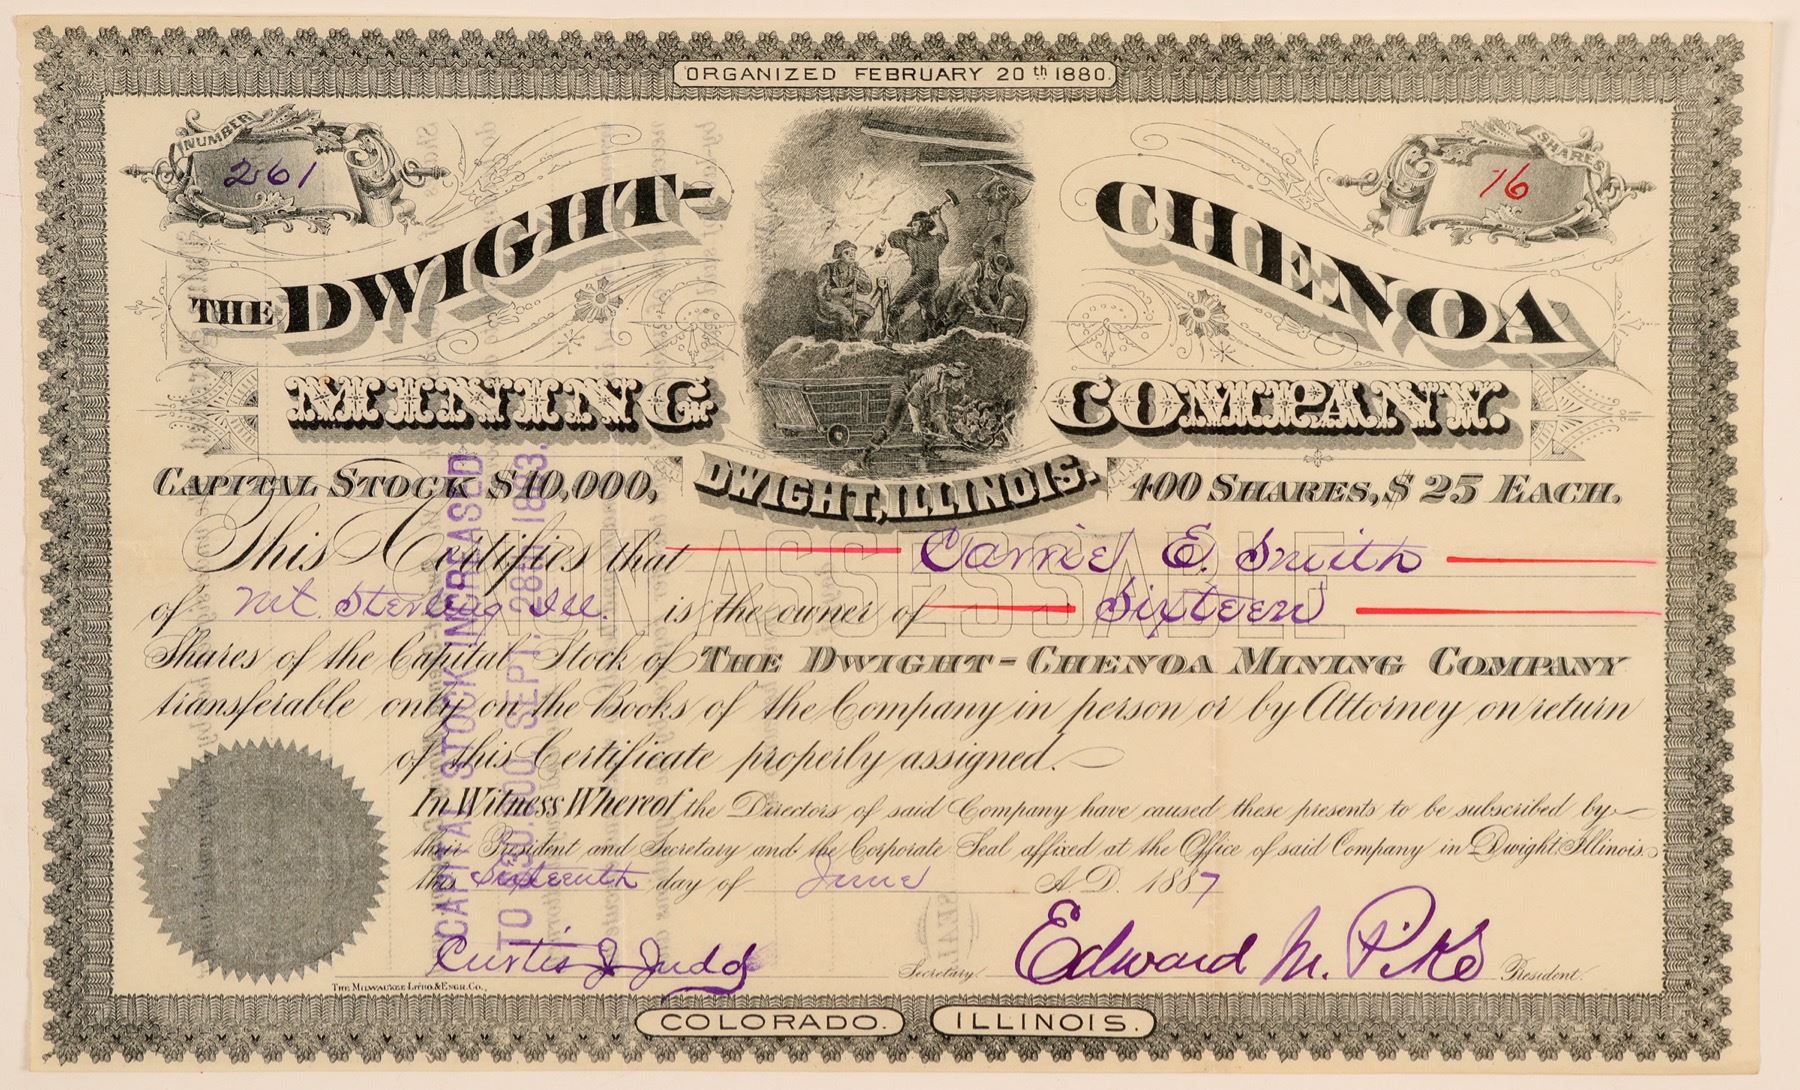 ORGANIZED FEBRUARY 20th 1880.
NUMBER
261
SHARES
16
THE DWIGHT-CHENOA
MINING COMPANY.
DWIGHT, ILLINOIS.
CAPITAL STOCK $10,000,
400 SHARES, $25 EACH.
NON ASSESSABLE
This Certifies that Carrie E. Smith
of Mt. Sterling Ill. is the owner of Sixteen
Shares of the Capital Stock of THE DWIGHT-CHENOA MINING COMPANY
transferable only on the Books of the Company in person or by Attorney on return
of this Certificate properly assigned.
In Witness Whereof the Directors of said Company have caused these presents to be subscribed by
their President and Secretary and the Corporate Seal affixed at the Office of said Company in Dwight, Illinois.
this Sixteenth day of June A.D. 1887
Curtis J. Judd Secretary. Edward M. Pike President.
SEAL
CAPITAL STOCK INCREASED
SEPT. 28TH 1883.
THE MILWAUKEE LITHO. & ENGR. CO.
COLORADO. ILLINOIS.